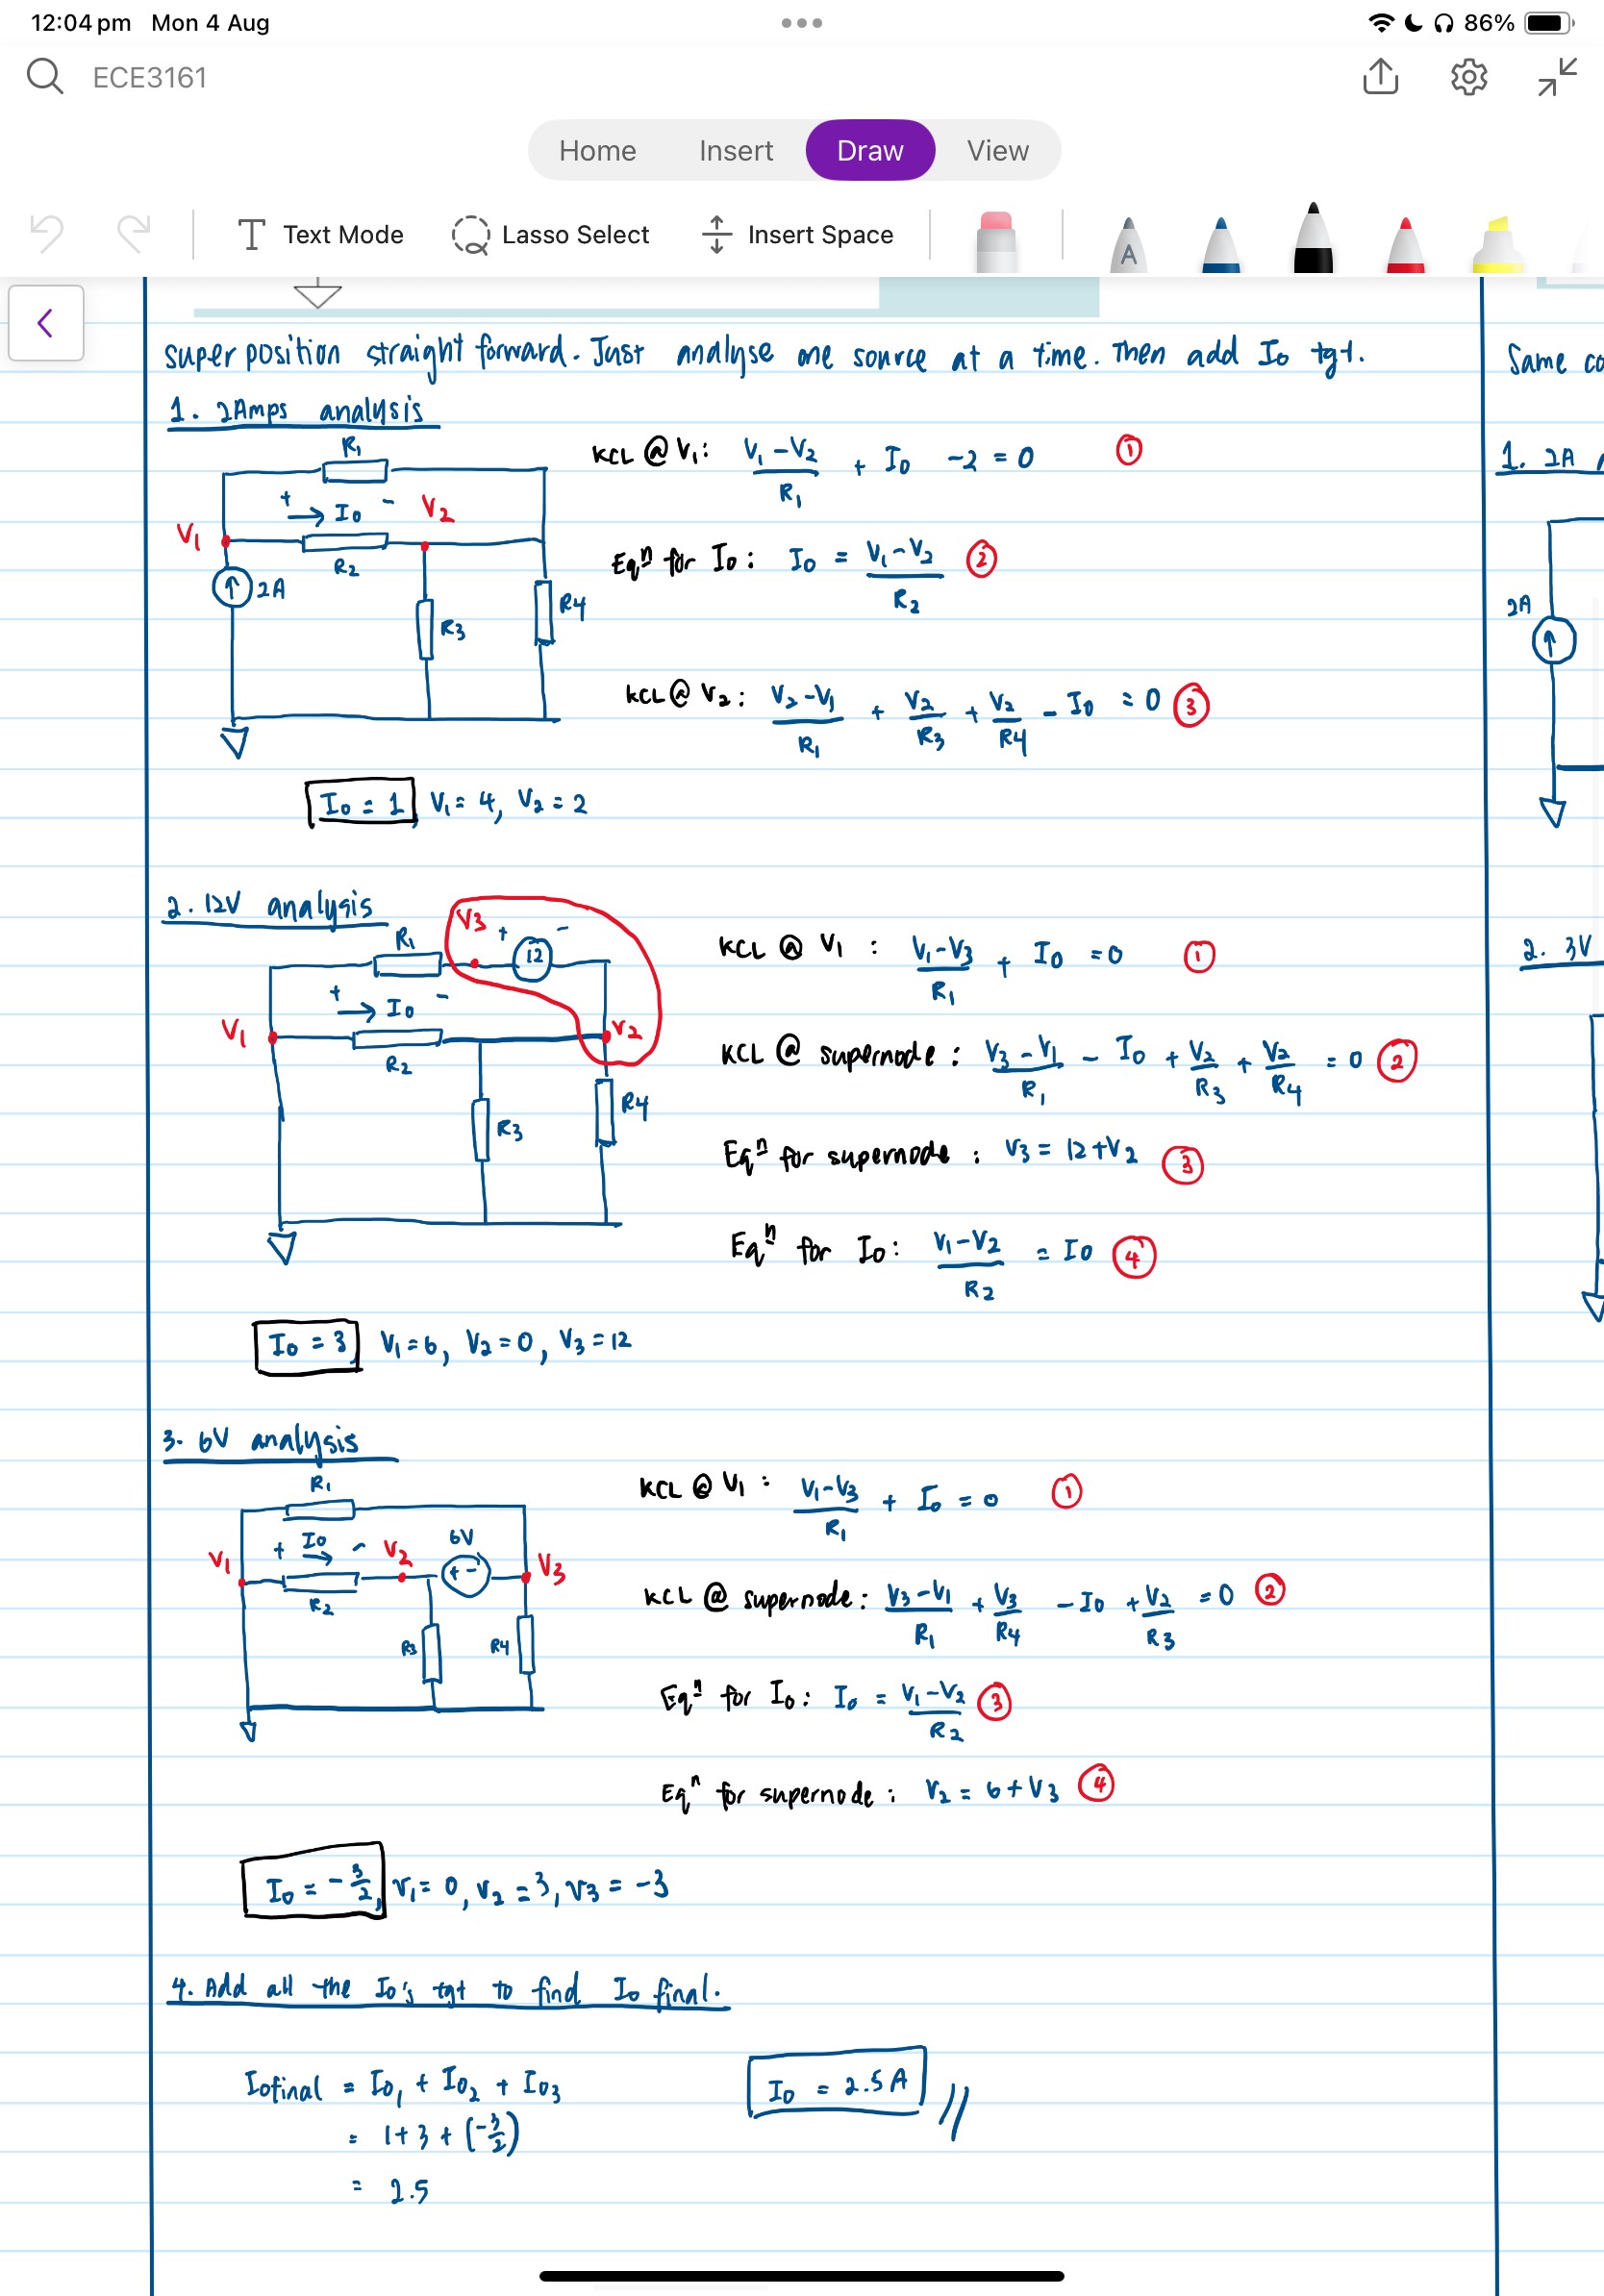 12:04 pm Mon 4 Aug
86%
ECE3161
Home Insert Draw View
Text Mode Lasso Select Insert Space
A
super position straight forward. Just analyse one source at a time. Then add Io tgt.
Same co
1. 2Amps analysis
R1
+ → Io -
V2
V1
R2
2A
R3
R4
KCL @ V1: (V1 - V2)/R1 + Io - 2 = 0 ①
Eqn for Io: Io = (V1 - V2)/R2 ②
KCL @ V2: (V2 - V1)/R1 + V2/R3 + V2/R4 - Io = 0 ③
Io = 1, V1 = 4, V2 = 2
1. 2A
2A
2. 12V analysis
V3 + -
12
R1
+ → Io -
V1
V2
R2
R3
R4
KCL @ V1 : (V1 - V3)/R1 + Io = 0 ①
KCL @ supernode : (V3 - V1)/R1 - Io + V2/R3 + V2/R4 = 0 ②
Eqn for supernode : V3 = 12 + V2 ③
Eqn for Io: (V1 - V2)/R2 = Io ④
Io = 3, V1 = 6, V2 = 0, V3 = 12
2. 3V
3. 6V analysis
R1
+ Io → -
V1
V2
6V
+ -
V3
R2
R3
R4
KCL @ V1 : (V1 - V3)/R1 + Io = 0 ①
KCL @ supernode: (V3 - V1)/R1 + V3/R4 - Io + V2/R3 = 0 ②
Eqn for Io: Io = (V1 - V2)/R2 ③
Eqn for supernode : V2 = 6 + V3 ④
Io = -3/2, V1 = 0, V2 = 3, V3 = -3
4. Add all the Io's tgt to find Io final.
Io final = Io1 + Io2 + Io3
= 1 + 3 + (-3/2)
= 2.5
Io = 2.5 A //